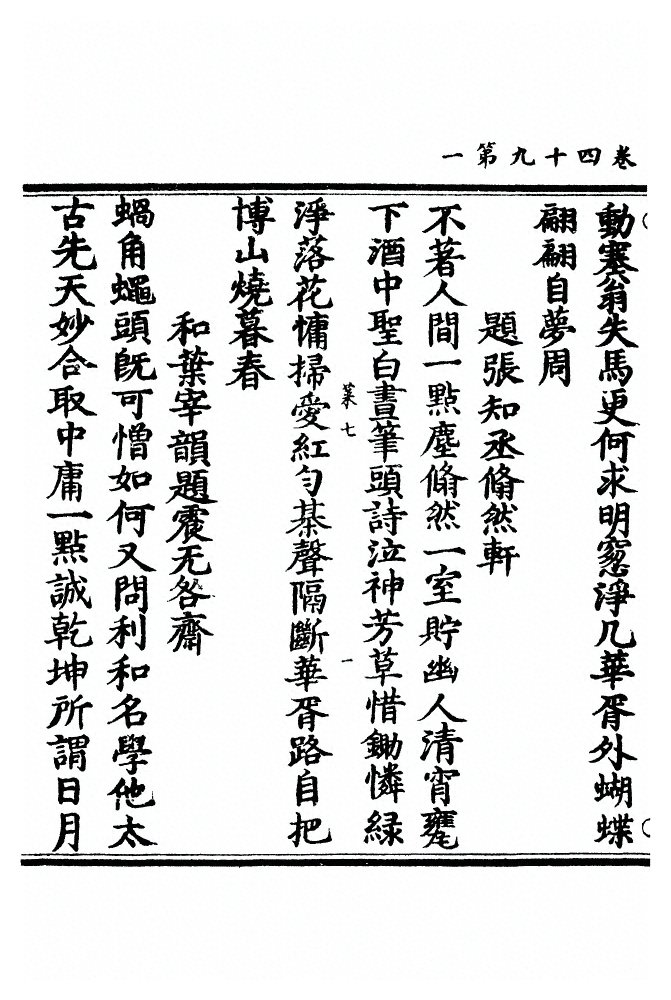 一第九十四卷
動塞翁失馬更何求明窓淨几華胥外蝴蝶
翩翩自夢周
題張知丞翛然軒
不著人間一點塵翛然一室貯幽人清宵甕
下酒中聖白晝筆頭詩泣神芳草惜鋤憐緑
葉七
一
淨落花慵掃愛紅勻棊聲隔斷華胥路自把
博山燒暮春
和葉宰韻題霞无咎齋
蝸角蠅頭旣可憎如何又問利和名學他太
古先天妙合取中庸一點誠乾坤所謂日月